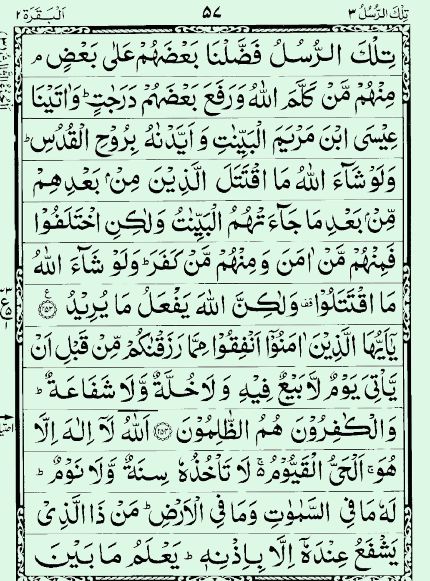 تِلْكَ الرُّسُلُ ٣ ٥٧ اَلْبَقَرَة ٢
تِلْكَ الرُّسُلُ فَضَّلْنَا بَعْضَهُمْ عَلٰى بَعْضٍ ۘ
مِنْهُمْ مَّنْ كَلَّمَ اللّٰهُ وَرَفَعَ بَعْضَهُمْ دَرَجٰتٍ ؕ وَاٰتَيْنَا
عِيْسَى ابْنَ مَرْيَمَ الْبَيِّنٰتِ وَاَيَّدْنٰهُ بِرُوْحِ الْقُدُسِ ؕ
وَلَوْ شَآءَ اللّٰهُ مَا اقْتَتَلَ الَّذِيْنَ مِنْۢ بَعْدِهِمْ
مِّنْۢ بَعْدِ مَا جَآءَتْهُمُ الْبَيِّنٰتُ وَلٰكِنِ اخْتَلَفُوْا
فَمِنْهُمْ مَّنْ اٰمَنَ وَمِنْهُمْ مَّنْ كَفَرَ ؕ وَلَوْ شَآءَ اللّٰهُ
مَا اقْتَتَلُوْا ۫ وَلٰكِنَّ اللّٰهَ يَفْعَلُ مَا يُرِيْدُ ﴿۲۵۳﴾
يٰۤاَيُّهَا الَّذِيْنَ اٰمَنُوْۤا اَنْفِقُوْا مِمَّا رَزَقْنٰكُمْ مِّنْ قَبْلِ اَنْ
يَّاْتِىَ يَوْمٌ لَّا بَيْعٌ فِيْهِ وَلَا خُلَّةٌ وَّلَا شَفَاعَةٌ ؕ
وَالْكٰفِرُوْنَ هُمُ الظّٰلِمُوْنَ ﴿۲۵۴﴾ اَللّٰهُ لَاۤ اِلٰهَ اِلَّا
هُوَ ۚ اَلْحَىُّ الْقَيُّوْمُ ۬ۚ لَا تَاْخُذُهٗ سِنَةٌ وَّلَا نَوْمٌ ؕ
لَهٗ مَا فِى السَّمٰوٰتِ وَمَا فِى الْاَرْضِ ؕ مَنْ ذَا الَّذِىْ
يَشْفَعُ عِنْدَهٗۤ اِلَّا بِاِذْنِهٖ ؕ يَعْلَمُ مَا بَيْنَ